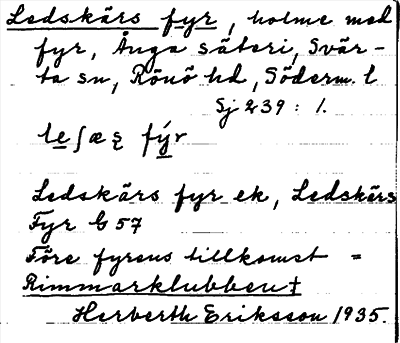 Ledskärs fyr, holme med
fyr, Ånga säteri, Svär-
ta sn, Rönö hd, Söderm. l
Sj 239 : 1.
fýr
Ledskärs fyr ek, Ledskärs
Fyr G 57
Före fyrens tillkomst =
Rimmarklubben‡
Herberth Eriksson 1935.